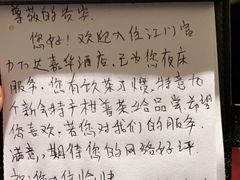 尊敬的贵宾
您好！欢迎入住江门富
力万达嘉华酒店，已为您夜床
服务，您有饮茶习惯，特意为
个新会特产柑普茶给品尝希望
您喜欢，若您对我们的服务
满意，期待您的网络好评
祝：您入住愉快